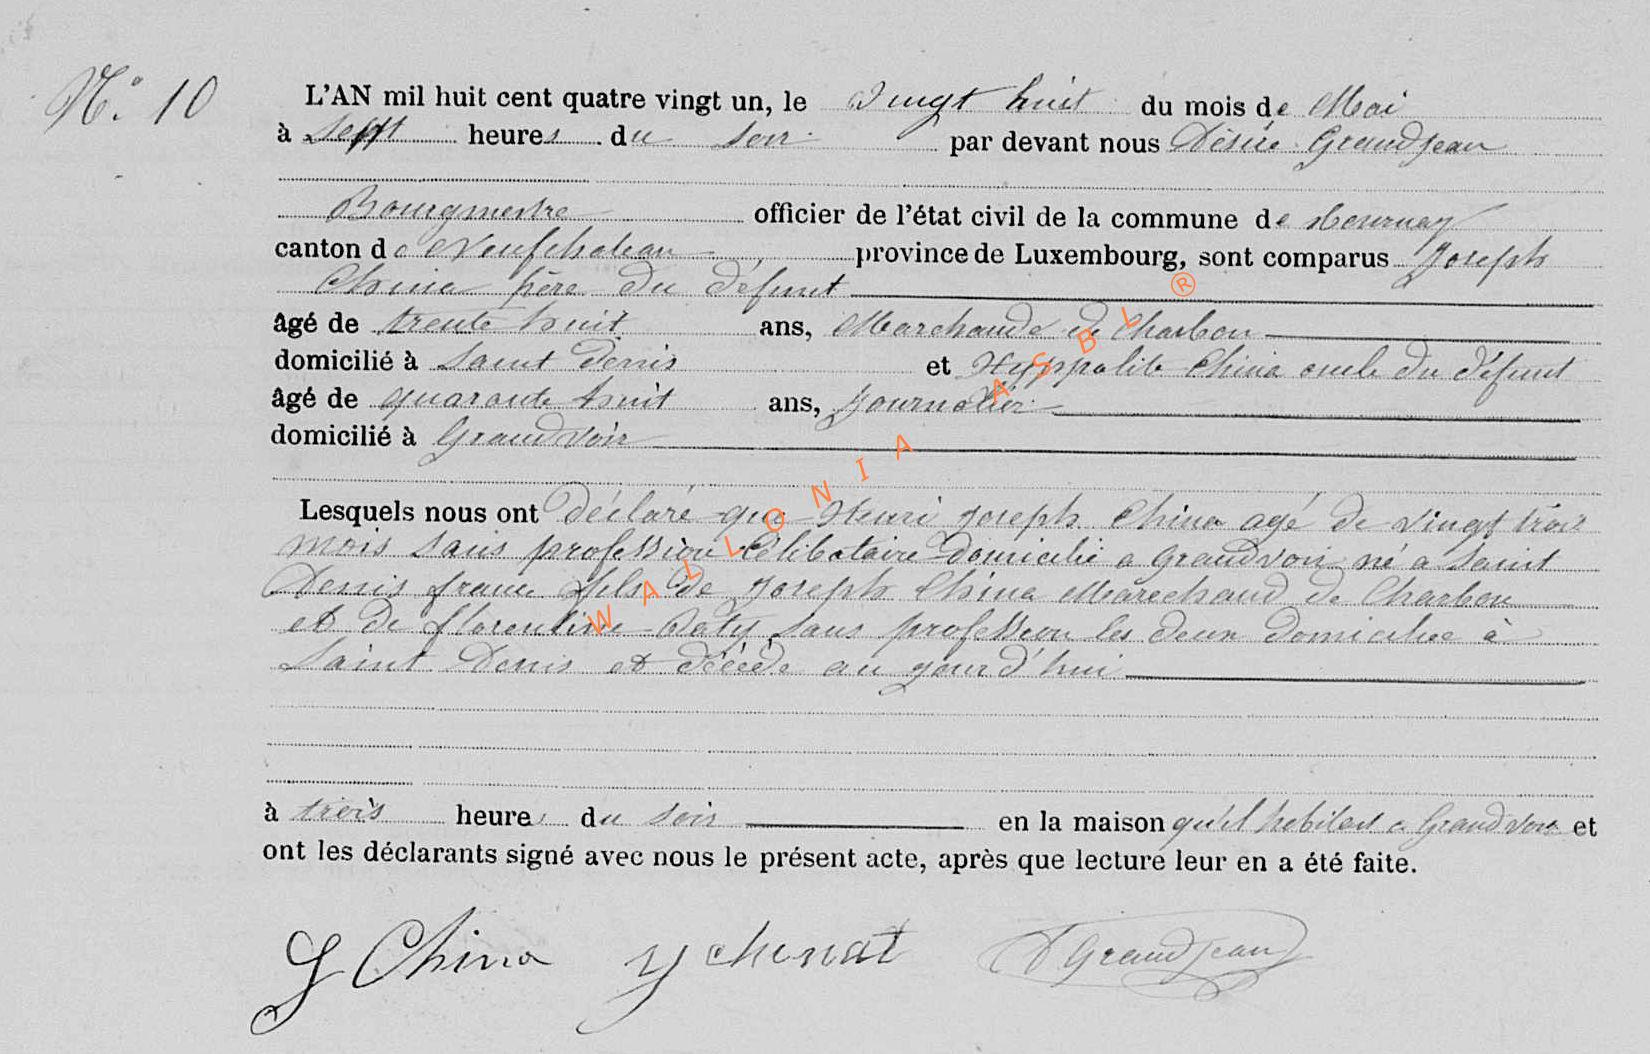 N.° 10
L'AN mil huit cent quatre vingt un, le vingt huit du mois de Mai
à sept heures du soir par devant nous Désiré Grandjean
Bourgmestre officier de l'état civil de la commune de Tournay
canton de Neufchateau province de Luxembourg, sont comparus Joseph
China père du défunt
âgé de trente huit ans, Marchand de Charbon
domicilié à Saint Denis et Hyppolite China oncle du défunt
âgé de quarante huit ans, Journalier
domicilié à Grandvoir
Lesquels nous ont déclaré que Henri Joseph China agé de vingt trois
mois sans profession Célibataire domicilié a Grandvoir né a Saint
Denis france fils de Joseph China Marechand de Charbon
et de florentine Doty sans profession les deux domicilié à
Saint Denis et décédé au jourd'hui
à trois heures du soir en la maison qu'il habitait a Grandvoir et
ont les déclarants signé avec nous le présent acte, après que lecture leur en a été faite.
J China y chenat D Grandjean
WALLONIA ASBL ®